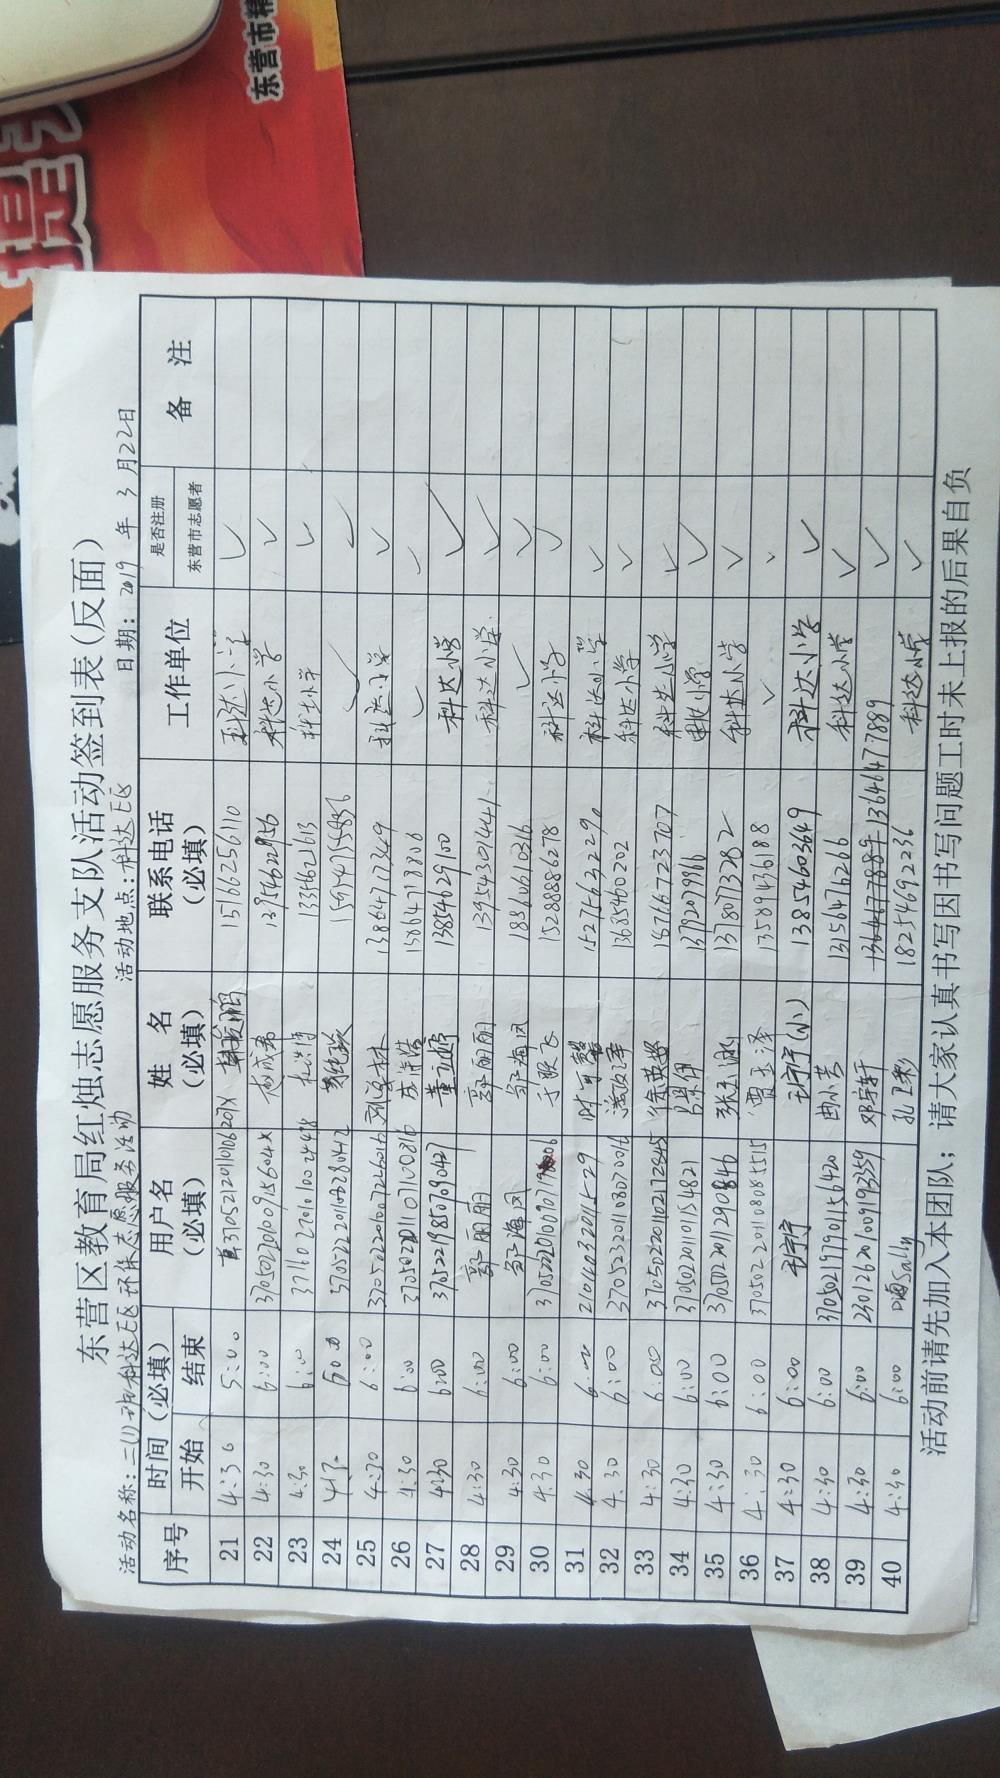 东营市精
提
东营区教育局红烛志愿服务支队活动签到表(反面)
活动名称:二(1)班科达E区环保志愿服务活动 活动地点:科达E区 日期:2019年3月22日
序号 时间(必填) 用户名(必填) 姓名(必填) 联系电话(必填) 工作单位 是否注册东营市志愿者 备注
开始 结束
21 4:30 5:00 15166256110 科达小学 ✓
22 4:30 6:00 37050220100915604X 13954622956 科达小学 ✓
23 4:30 6:00 13356621613 科达小学 ✓
24 ✓ ✓
25 4:30 6:00 370502201007226016 13864777349 科达小学 ✓
26 4:30 6:00 15864718806 ✓ ✓
27 4:30 6:00 370522198507090427 13854629100 科达小学 ✓
28 4:30 6:00 郭丽丽 郭丽丽 13954301441 科达小学 ✓
29 4:30 6:00 邹海凤 邹海凤 18860610316 ✓ ✓
30 4:30 6:00 于耿飞 15288886278 科达小学 ✓
31 4:30 6:00 15275632290 科达小学 ✓
32 4:30 6:00 370523201108070016 13685460202 科达小学 ✓
33 4:30 6:00 370502201102172845 徐英姿 18766723707 科达小学 ✓
34 4:30 6:00 370502201101154821 13792079916 科达小学 ✓
35 4:30 6:00 370502201129 0846 张玉涵 13780773282 科达小学 ✓
36 4:30 6:00 370502201108085515 贾玉泽 13589436188 ✓ ✓
37 4:30 6:00 王宁宁 王宁宁(小) 13854603649 科达小学 ✓
38 4:30 6:00 370502197901156420 曲小芸 13156476266 科达小学 ✓
39 4:30 6:00 230126201009193359 邓宇轩 13646477889 ✓
40 4:30 6:00 嗨Sally 孔卫彩 18254692236 科达小学 ✓
活动前请先加入本团队;请大家认真书写因书写问题工时未上报的后果自负